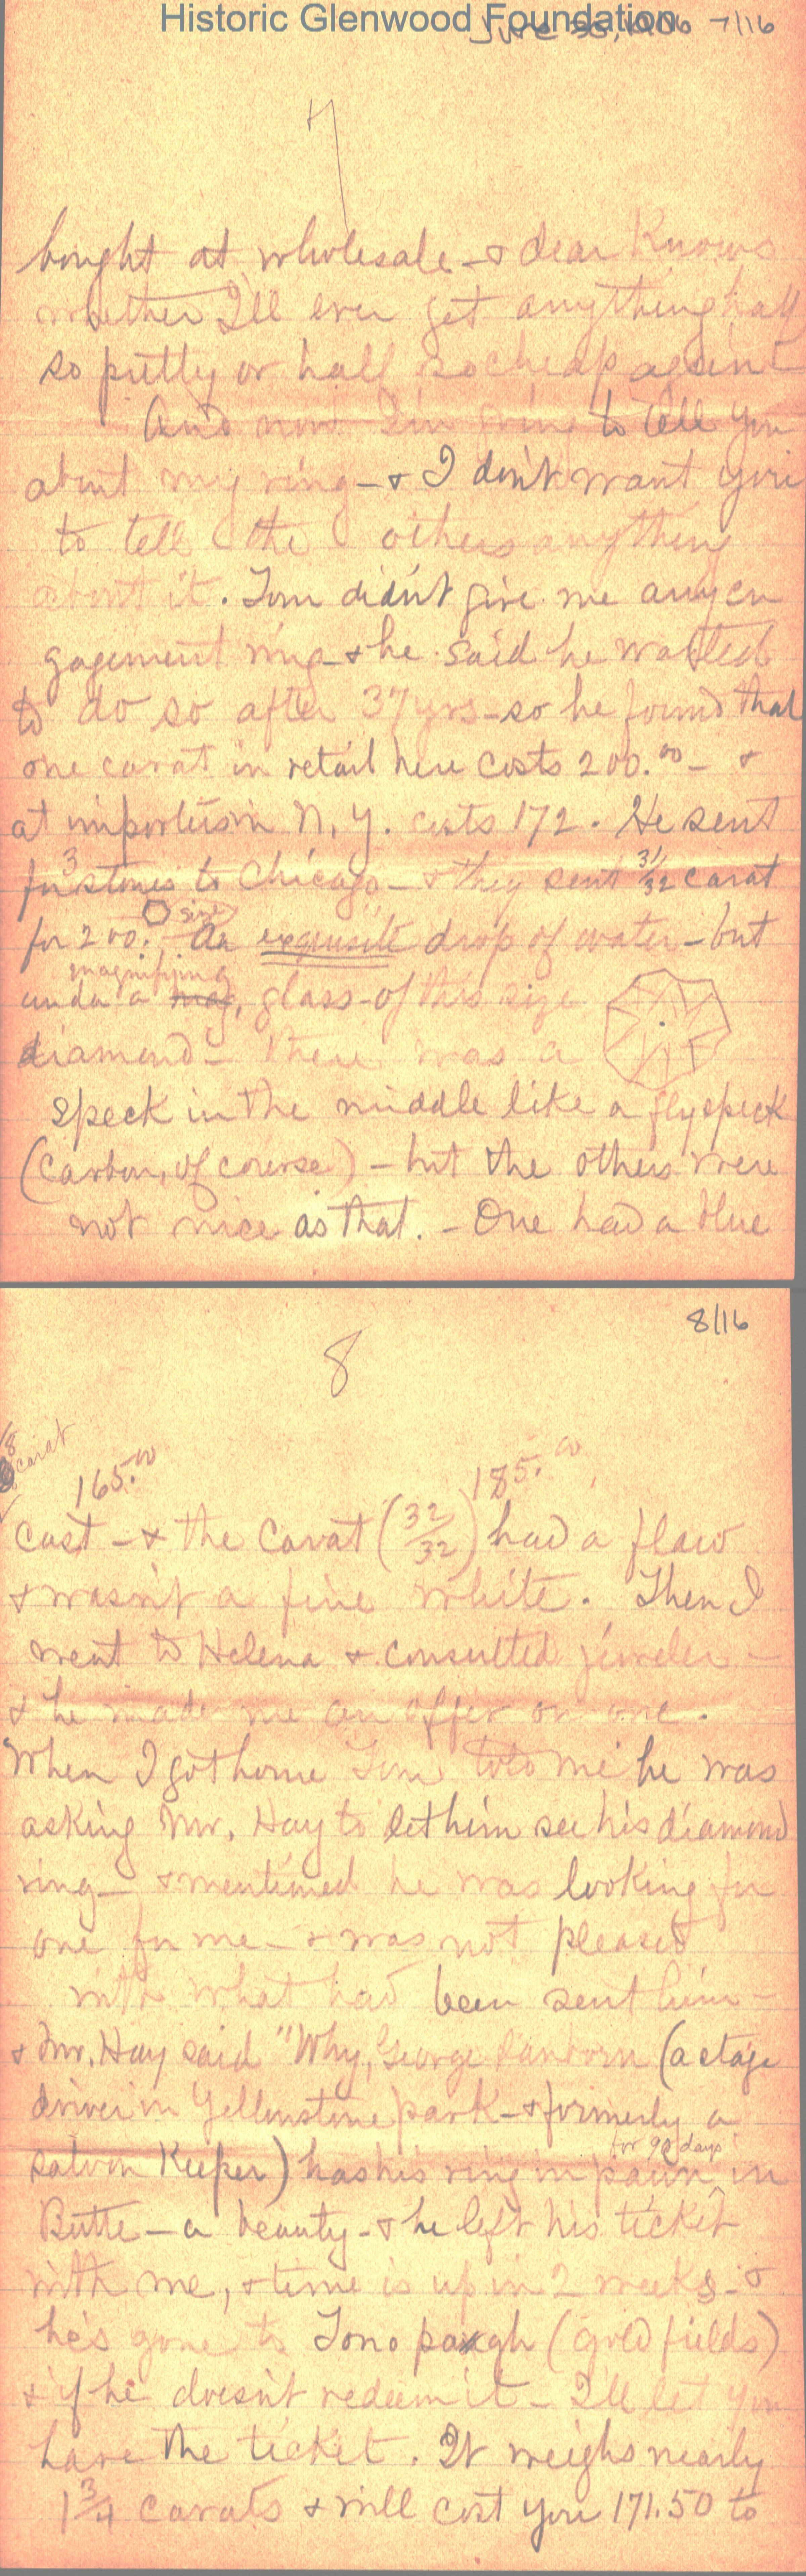 Historic Glenwood Foundation
June 1906 7/16
7
bought at wholesale - & dear knows
whether I'll ever get anything half
so pretty or half so cheap again!
And now I'm going to tell you
about my ring - & I don't want you
to tell the others anything
about it. Tom didn't give me any en
gagement ring - & he said he wanted
to do so after 37 yrs - so he found that
one carat in retail here costs 200.00 - &
at importers in N.Y. costs 172. He sent
for 3 stones to Chicago - & they sent 31/32 carat
size
for 200. An exquisite drop of water - but
magnifying
under a mag. glass - of this size
diamond - there was a
speck in the middle like a flyspeck
(Carbon, of course) - but the others were
not nice as that. - One had a blue
8/16
8
carat
165.00 185.00
cast - & the Carat (32/32) had a flaw
& wasn't a fine white. Then I
went to Helena & consulted jeweler -
& he made me an offer on one.
When I got home Tom told me he was
asking Mr. Hay to let him see his diamond
ring - & mentioned he was looking for
one for me - & was not pleased
with what had been sent him -
& Mr. Hay said "Why, George Sanborn (a stage
driver in Yellowstone park - & formerly a
for 90 days
saloon Keeper) has his ring in pawn in
Butte - a beauty - & he left his ticket
with me, & time is up in 2 weeks - &
he's gone to Tonopaugh (gold fields)
& if he doesn't redeem it - I'll let you
have the ticket. It weighs nearly
1 3/4 carats & will cost you 171.50 to